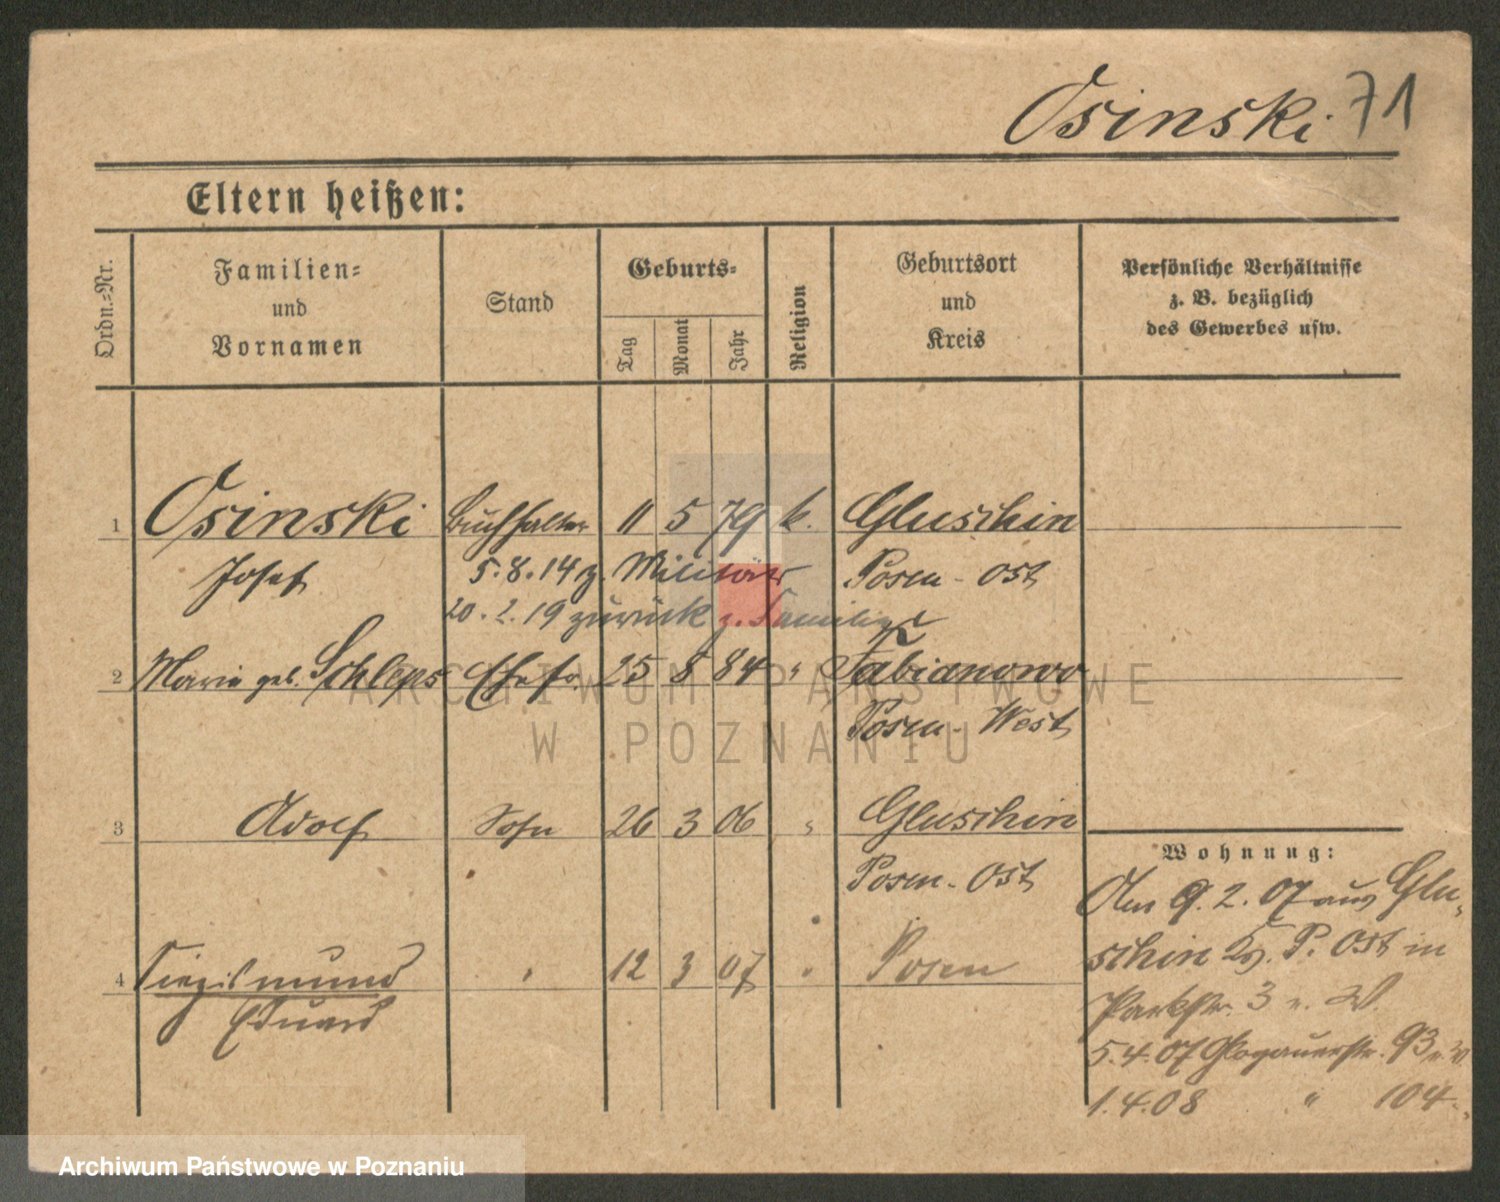 Osinski 71
Eltern heißen:
Ordn.=Nr.
Familien=
und
Vornamen
Stand
Geburts=
Tag
Monat
Jahr
Religion
Geburtsort
und
Kreis
Persönliche Verhältnisse
z. B. bezüglich
des Gewerbes usw.
1 Osinski Buchhalter 11 5 79 k. Gluschin
Josef 5.8.14 z. Militär Posen - Ost
20.2.19 zurück z. Familie
2 Marie geb. Schleps Ehefr. 25 8 84 " Fabianowo
Posen - West
3 Adolf Sohn 26 3 06 " Gluschin
Posen - Ost
Wohnung:
Am 9.2.07 aus Glu-
schin Kr. P. Ost in
4 Siegismund " 12 3 07 " Posen
Eduard
Parkstr. 3 v. W.
5.4.07 Glogauerstr. 93 v. W
1.4.08 " 104
ARCHIWUM PAŃSTWOWE
W POZNANIU
Archiwum Państwowe w Poznaniu